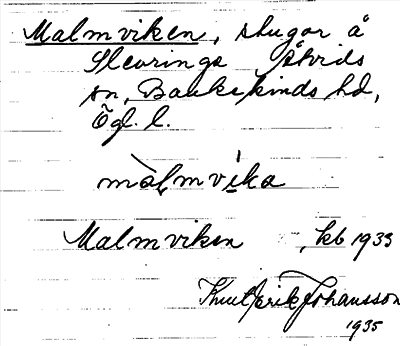 Malmviken, stugor å
Slevrings Åtvids
sn, Bankekinds hd,
Ögl. l.
màlmvika
Malmviken , kb 1933
Knut Erik Johansson
1935